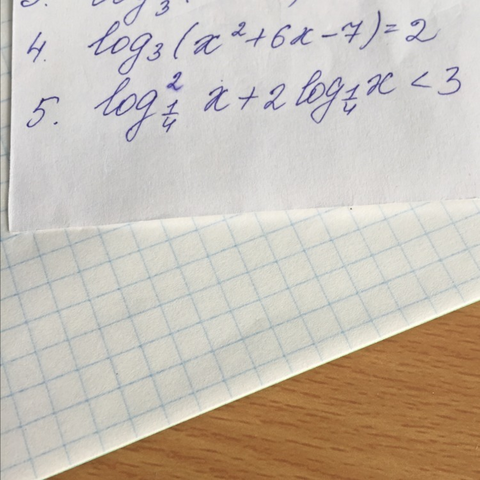 3. log₃(
4. log₃(x²+6x-7)=2
5. log²_{1/4} x+2 log_{1/4} x <3